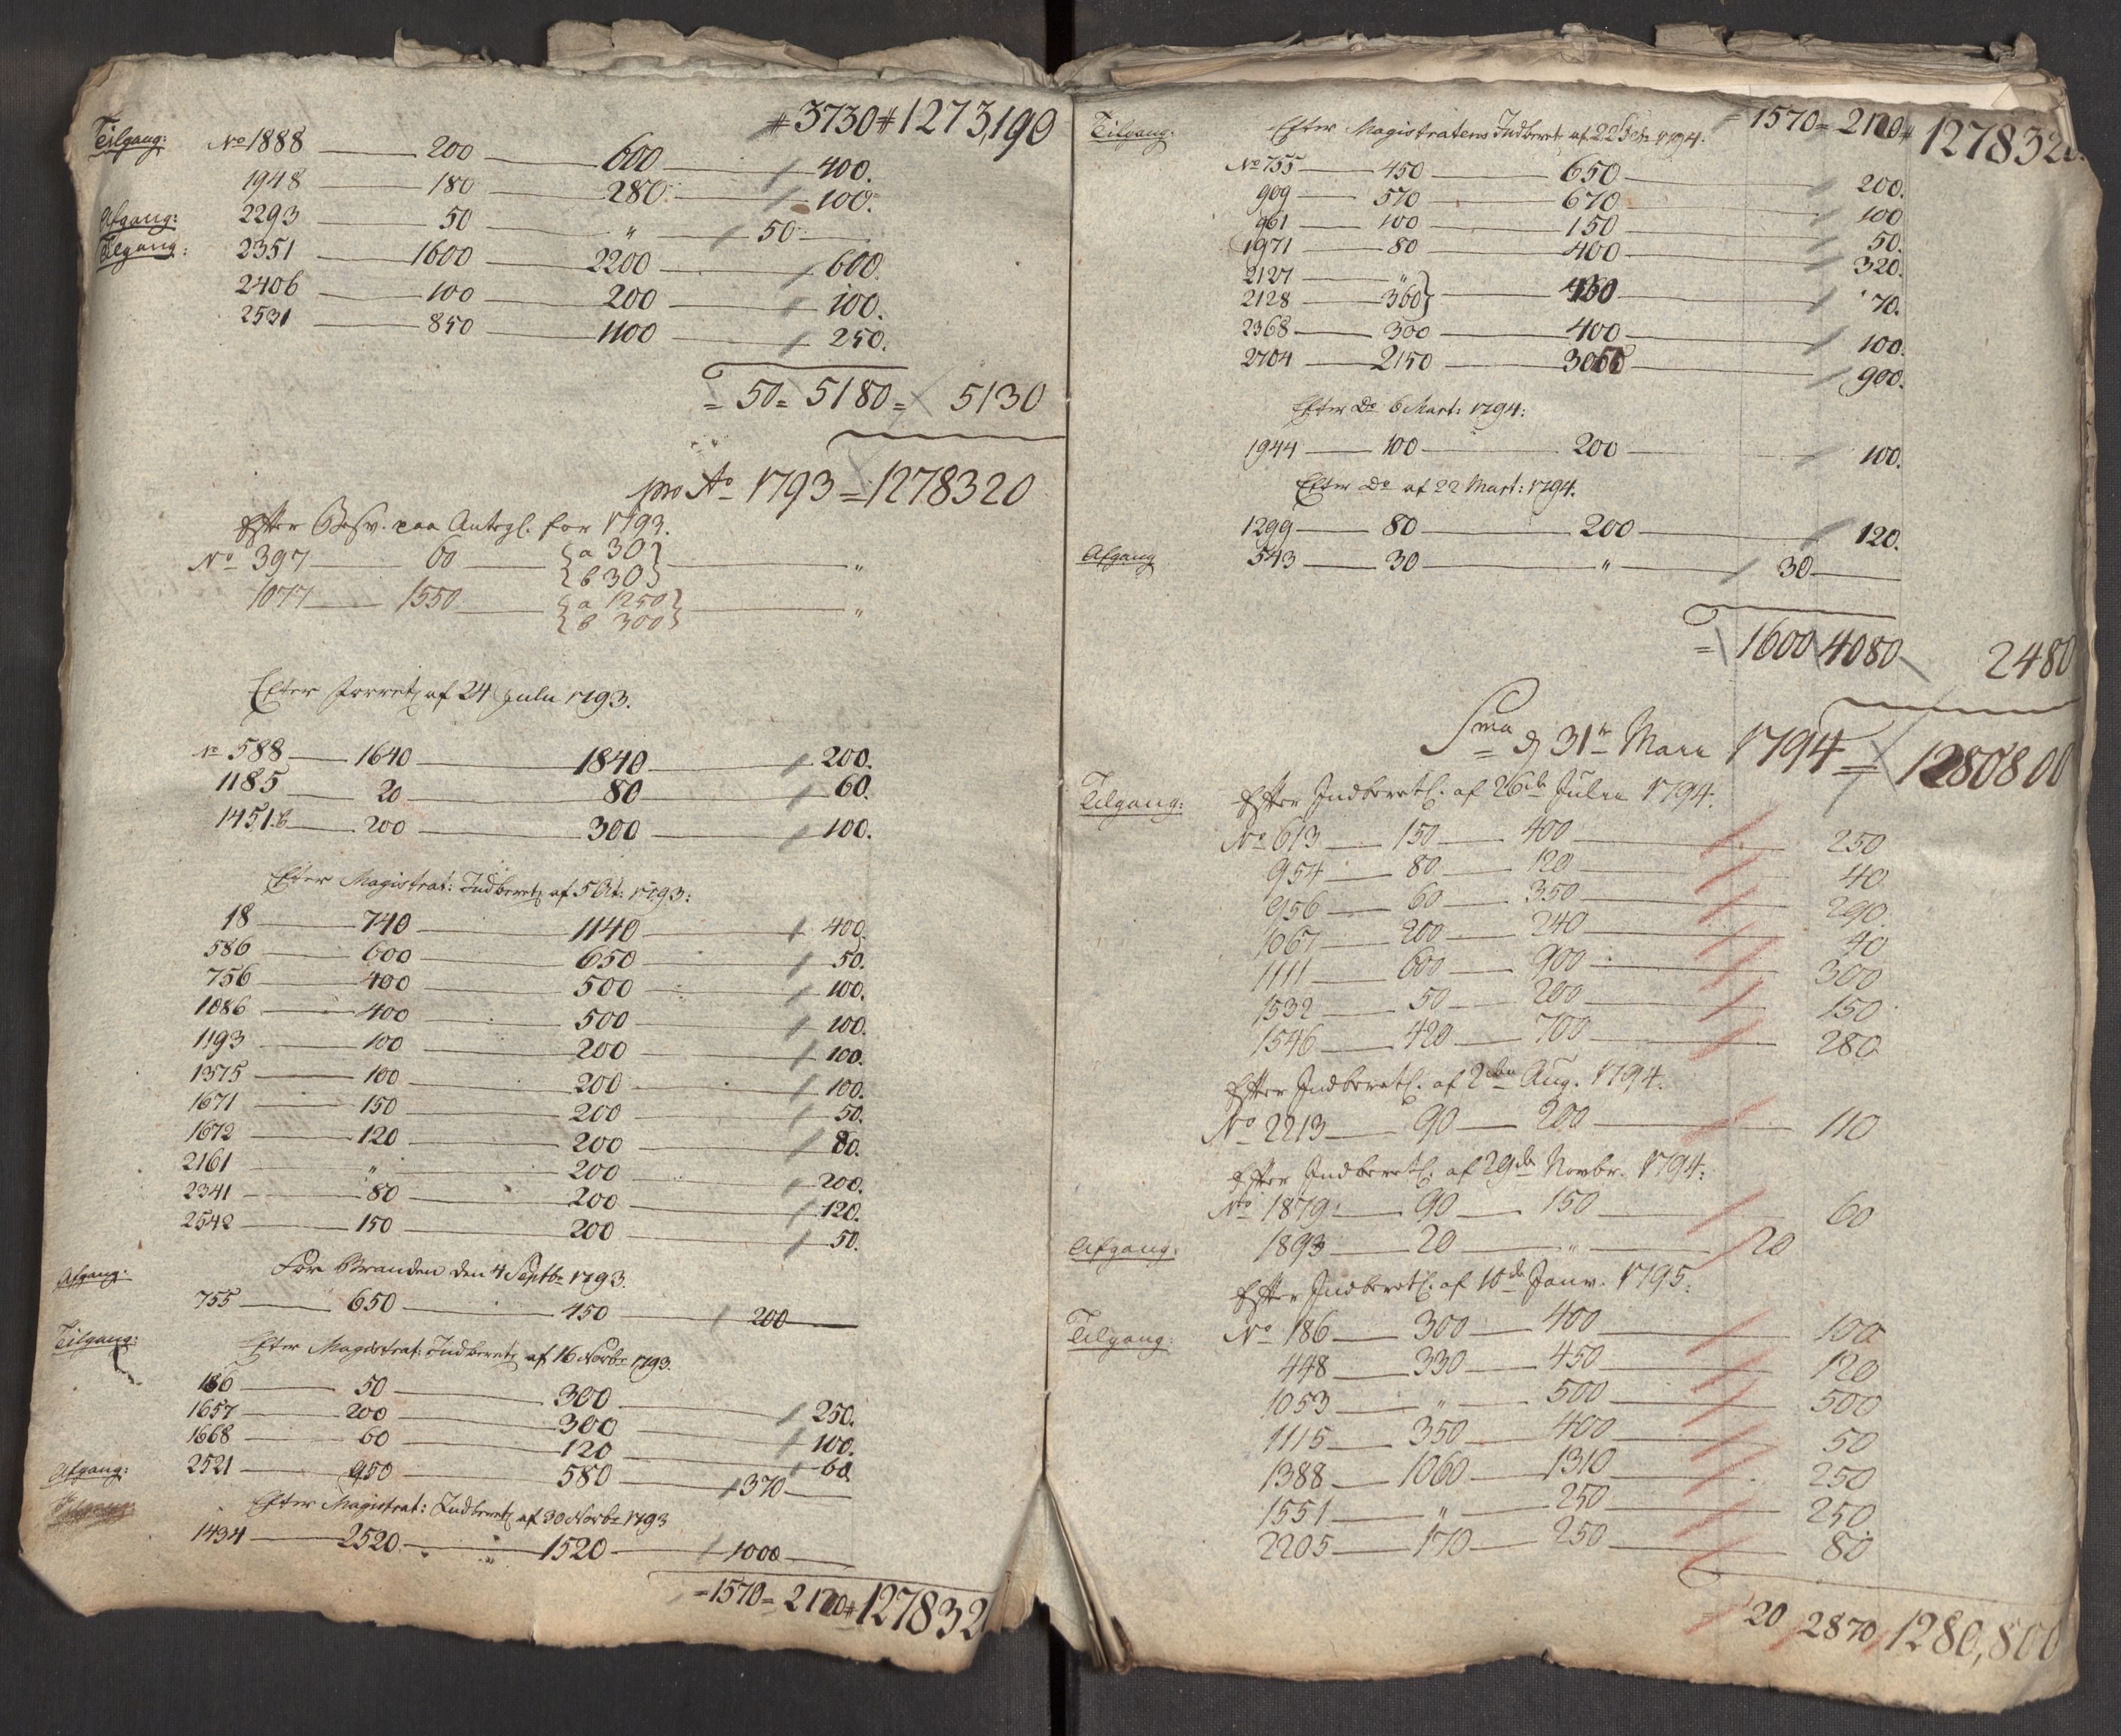 # 3730 # 1273,190
Tilgang: No 1888 200 600 400.
1948 180 280 100.
Afgang: 2293 50 " 50
Tilgang: 2351 1600 2200 600.
2406 100 200 100.
2531 850 1100 250.
= 50 = 5180 = 5130
pro Ao 1793 = 1278320
Efter Besv. paa Antegl. for 1793.
No 397 60 {a 30} {b 30} "
1077 1550 {a 1250} {b 300} "
Efter Forretn af 24 Julii 1793.
No 588 1640 1840 200.
1185 20 80 60.
1451.b 200 300 100.
Efter Magistrat: Indberetn af 5 Oct: 1793:
18 740 1140 400.
586 600 650 50.
756 400 500 100.
1086 400 500 100.
1193 100 200 100.
1375 100 200 100.
1671 150 200 50.
1672 120 200 80.
2161 " 200 200.
2341 80 200 120.
2542 150 200 50.
Afgang: For Branden den 4 Septbr 1793.
755 650 450 200
Tilgang: Efter Magistrat: Indberetn af 16 Novbr 1793.
186 50 300 250.
1657 200 300 100.
1668 60 120 60.
Afgang: 2521 950 580 370
Efter Magistrat: Indberetn af 30 Novbr 1793
1434 2520 1520 1000
= 1570 = 2120 # 127832
= 1570 = 2120 # 127832
Tilgang: Efter Magistratens Indberetn af 22 1794.
No 755 450 650 200.
909 570 670 100
961 100 150 50.
1971 80 400 320.
2127 "
2128 360} 430 70.
2368 300 400 100.
2704 2150 3050 900.
Efter Do 6 Mart: 1794:
1944 100 200 100.
Efter Do af 22 Mart: 1794.
1299 80 200 120.
Afgang 543 30 " 30
= 1600 4080 2480
Sma d 31te Martz 1794 = 1280800
Tilgang: Efter Indberetl. af 26de Julii 1794.
No 613 150 400 250
954 80 120 40
956 60 350 290
1067 200 240 40
1111 600 900 300
1532 50 200 150
1546 420 700 280
Efter Indberetl. af 2den Aug. 1794.
No 2213 90 200 110
Efter Indberetl. af 29de Novbr. 1794:
No 1879 90 150 60
Afgang: 1893 20 " 20
Efter Indberetl. af 10de Janv. 1795:
Tilgang: No 186 300 400 100
448 330 450 120
1053 " 500 500
1115 350 400 50
1388 1060 1310 250
1551 " 250 250
2205 170 250 80
20 2870 1280,800